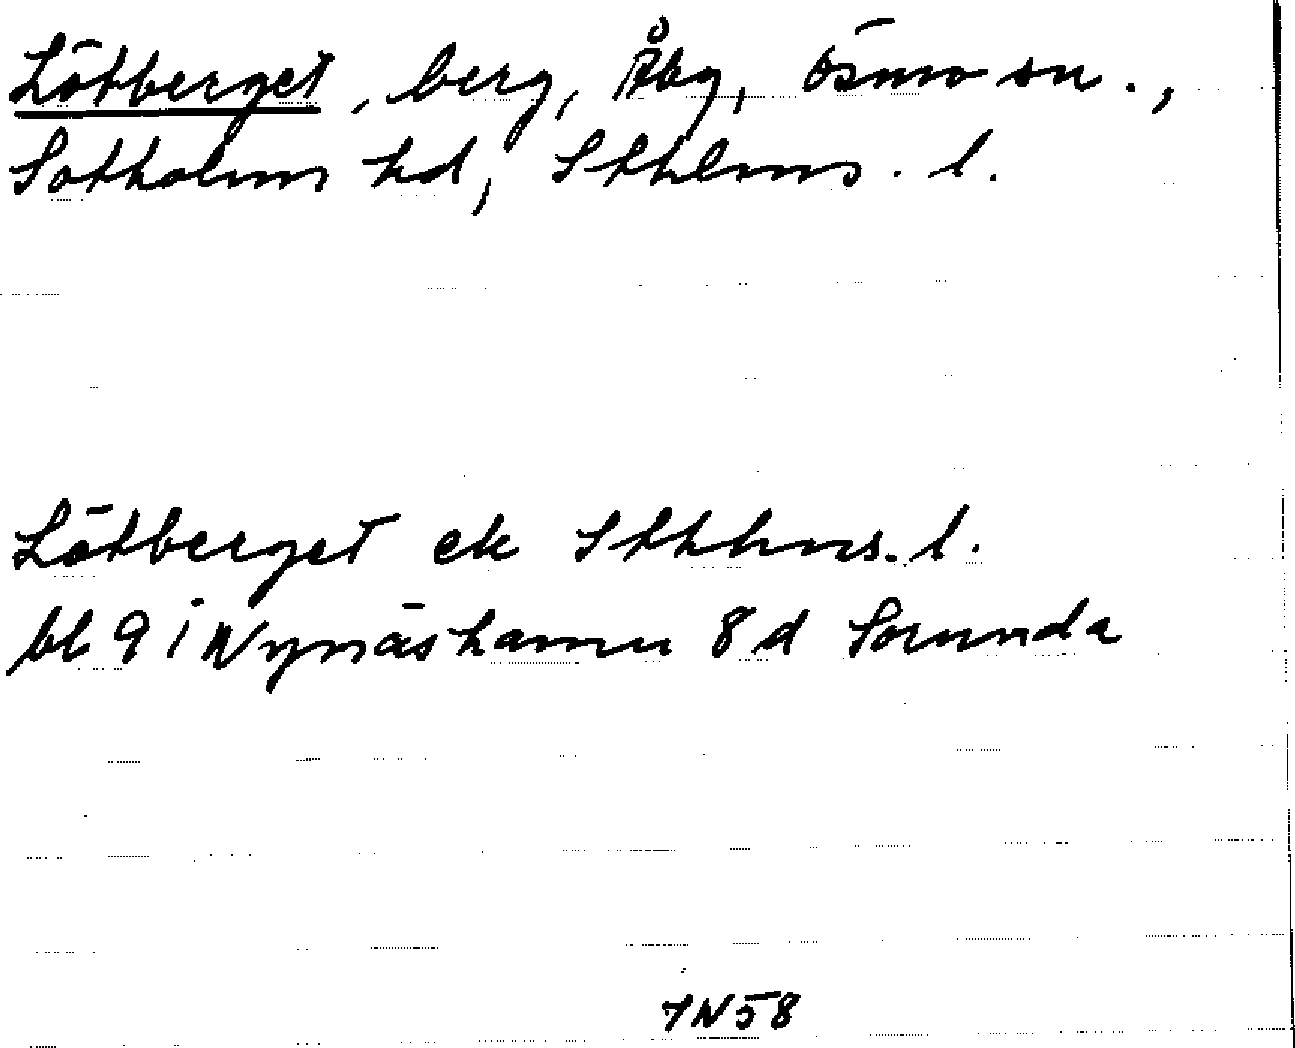 Lötberget, berg, Åby, Ösmo sn.,
Sotholms hd, Sthlms. l.
Lötberget ek Sthlms. l.
bl 9 i Nynäshamn 8 d Sorunda
7N58